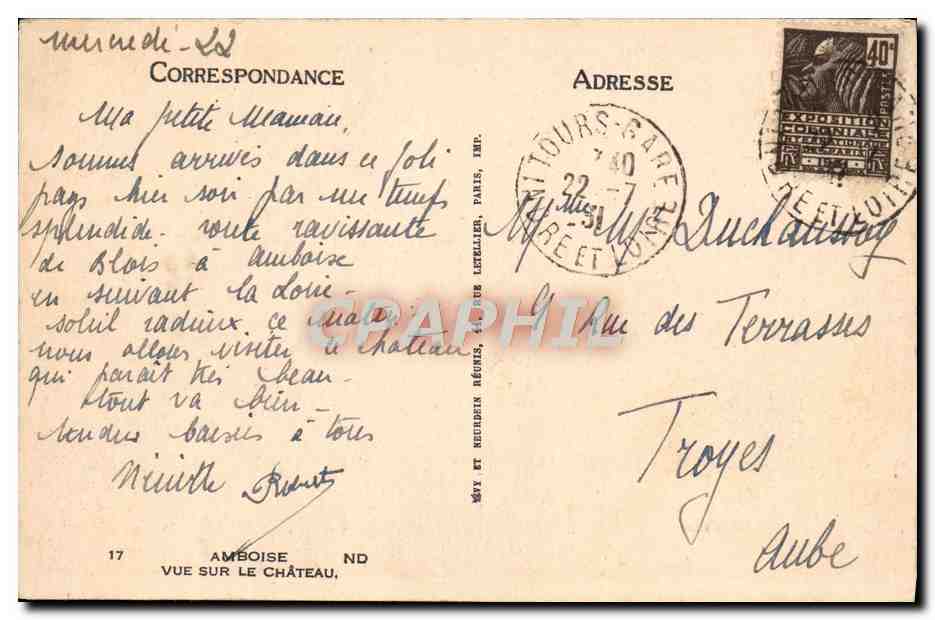 mercredi - 22
CORRESPONDANCE
Ma petite Maman,
Sommes arrivés dans ce joli
pays hier soir par un temps
splendide - route ravissante
de Blois à Amboise
en suivant la Loire -
soleil radieux ce matin
nous allons visiter le château
qui paraît très beau -
tout va bien -
tendres baisers à tous
Robert
17 AMBOISE ND
VUE SUR LE CHÂTEAU.
LÉVY ET NEURDEIN RÉUNIS, 44, RUE LETELLIER, PARIS, IMP.
CRAPHIL
ADRESSE
TOURS-GARE
7 40
22 -7
31
INDRE ET LOIRE
40c
POSTES
EXPOSITION
COLONIALE
INTERNATIONALE
PARIS 1931
RF
Duchaussoy
9 Rue des Terrasses
Troyes
Aube